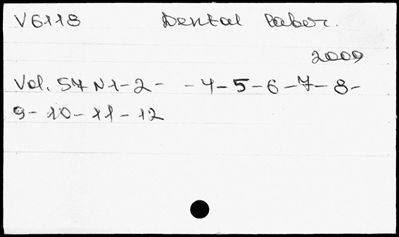 V6118 Dental Labor.
2009
Vol. 57 N1-2- -4-5-6-7-8-
9-10-11-12